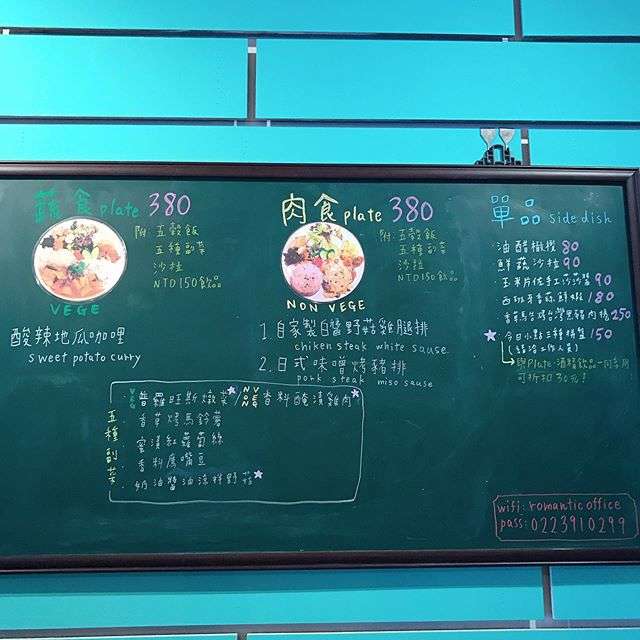 蔬食 plate 380
附:五穀飯
五種副菜
沙拉
NTD150飲品
VEGE
酸辣地瓜咖哩
sweet potato curry
肉食 plate 380
附:五穀飯
五種副菜
沙拉
NTD150飲品
NON VEGE
1. 自家製白醬野菇雞腿排
chiken steak white sause
2. 日式味噌烤豬排
pork steak miso sause
五種副菜
VEG 普羅旺斯燉菜 / NON VEG 香料醃漬雞肉
香草烤馬鈴薯
蜜漬紅蘿蔔絲
香料鷹嘴豆
奶油醬油涼拌野菇
單品 side dish
油醋橄欖 80
鮮蔬沙拉 90
玉米片佐手工莎莎醬 90
西班牙香蒜鮮蝦 180
香草馬告烤台灣黑豬肉桶 250
今日小點三種拼盤 150
(請洽工作人員)
與Plate 酒類飲品一同享用
可折扣30元!
wifi: romanticoffice
pass: 0223910299